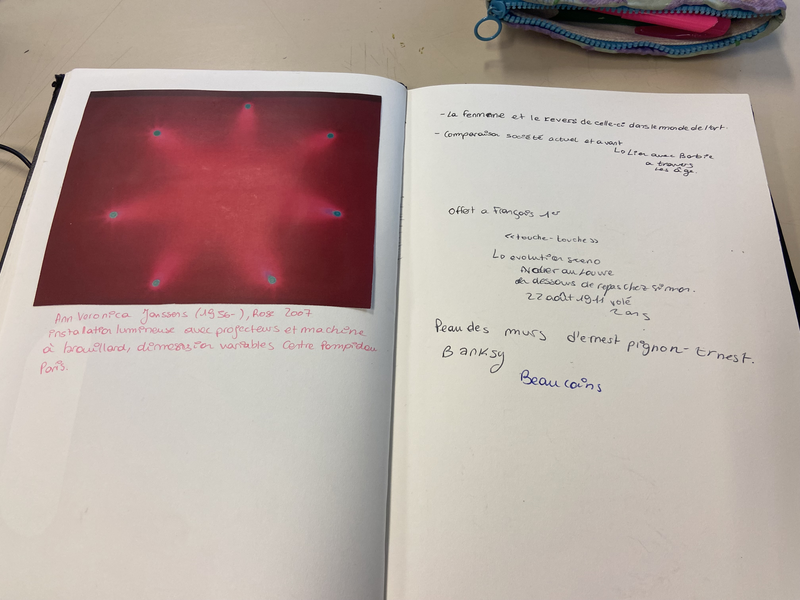 Ann Veronica Janssens (1956-), Rose 2007
installation lumineuse avec projecteurs et machine
à brouillard, dimension variables Centre Pompidou
Paris.
- La femme et le revers de celle-ci dans le monde de l'art.
- Comparaison société actuel et avant
↳ Lien avec Barbie
a travers
les âge.
Offert a François 1er
<<touche-touche>>
↳ evolution sceno
Atelier au Louvre
en dessous de repas chez Simon.
22 août 1911 volé
2 ans
Peau des murs d'ernest pignon-Ernest.
Banksy
Beau coins